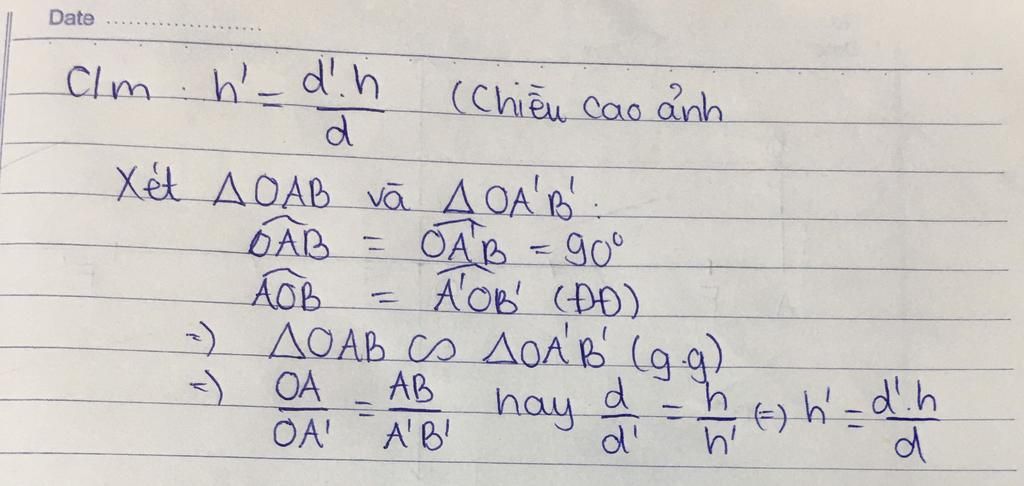 Date ........................
C/m . h' = d'.h/d (Chiều cao ảnh
Xét ΔOAB và ΔOA'B' :
OAB = OA'B = 90°
AOB = A'OB' (ĐĐ)
=) ΔOAB ∽ ΔOA'B' (g.g)
=) OA/OA' = AB/A'B' hay d/d' = h/h' (=) h' = d'.h/d